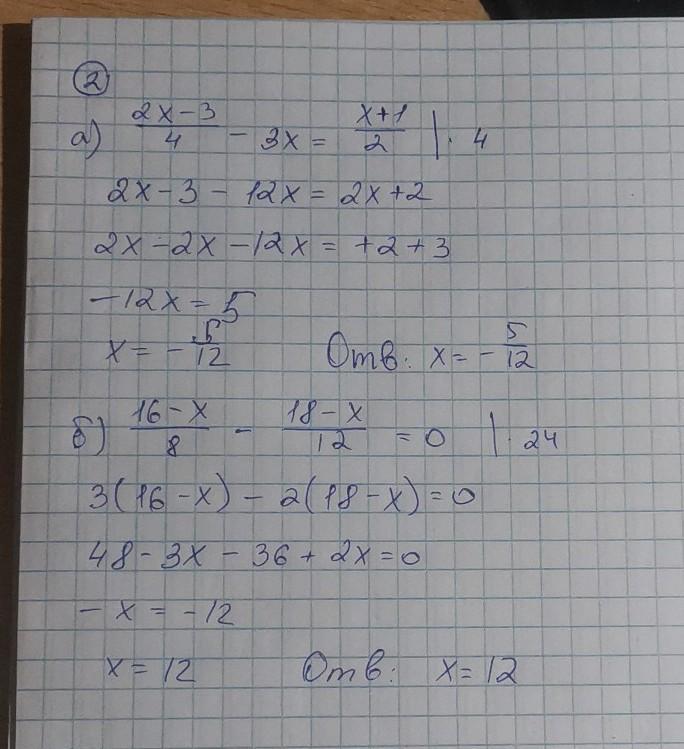 2
а) (2x-3)/4 - 3x = (x+1)/2 | · 4
2x-3 - 12x = 2x+2
2x-2x-12x = +2+3
-12x = 5
x = -5/12 Отв: x = -5/12
б) (16-x)/8 - (18-x)/12 = 0 | · 24
3(16-x) - 2(18-x) = 0
48-3x-36+2x=0
-x = -12
x = 12 Отв: x = 12